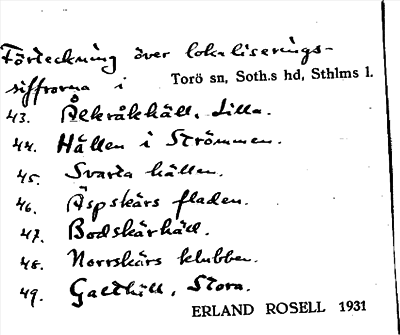 Förteckning över lokaliserings-
siffrorna i Torö sn, Soth.s hd, Sthlms l.
43. Ålkråkhäll, Lilla.
44. Hällen i Strömmen.
45. Svarta hällen.
46. Äspskärs fladen.
47. Bodskärhäll.
48. Norrskärs klubben.
49. Galthäll, Stora.
ERLAND ROSELL 1931